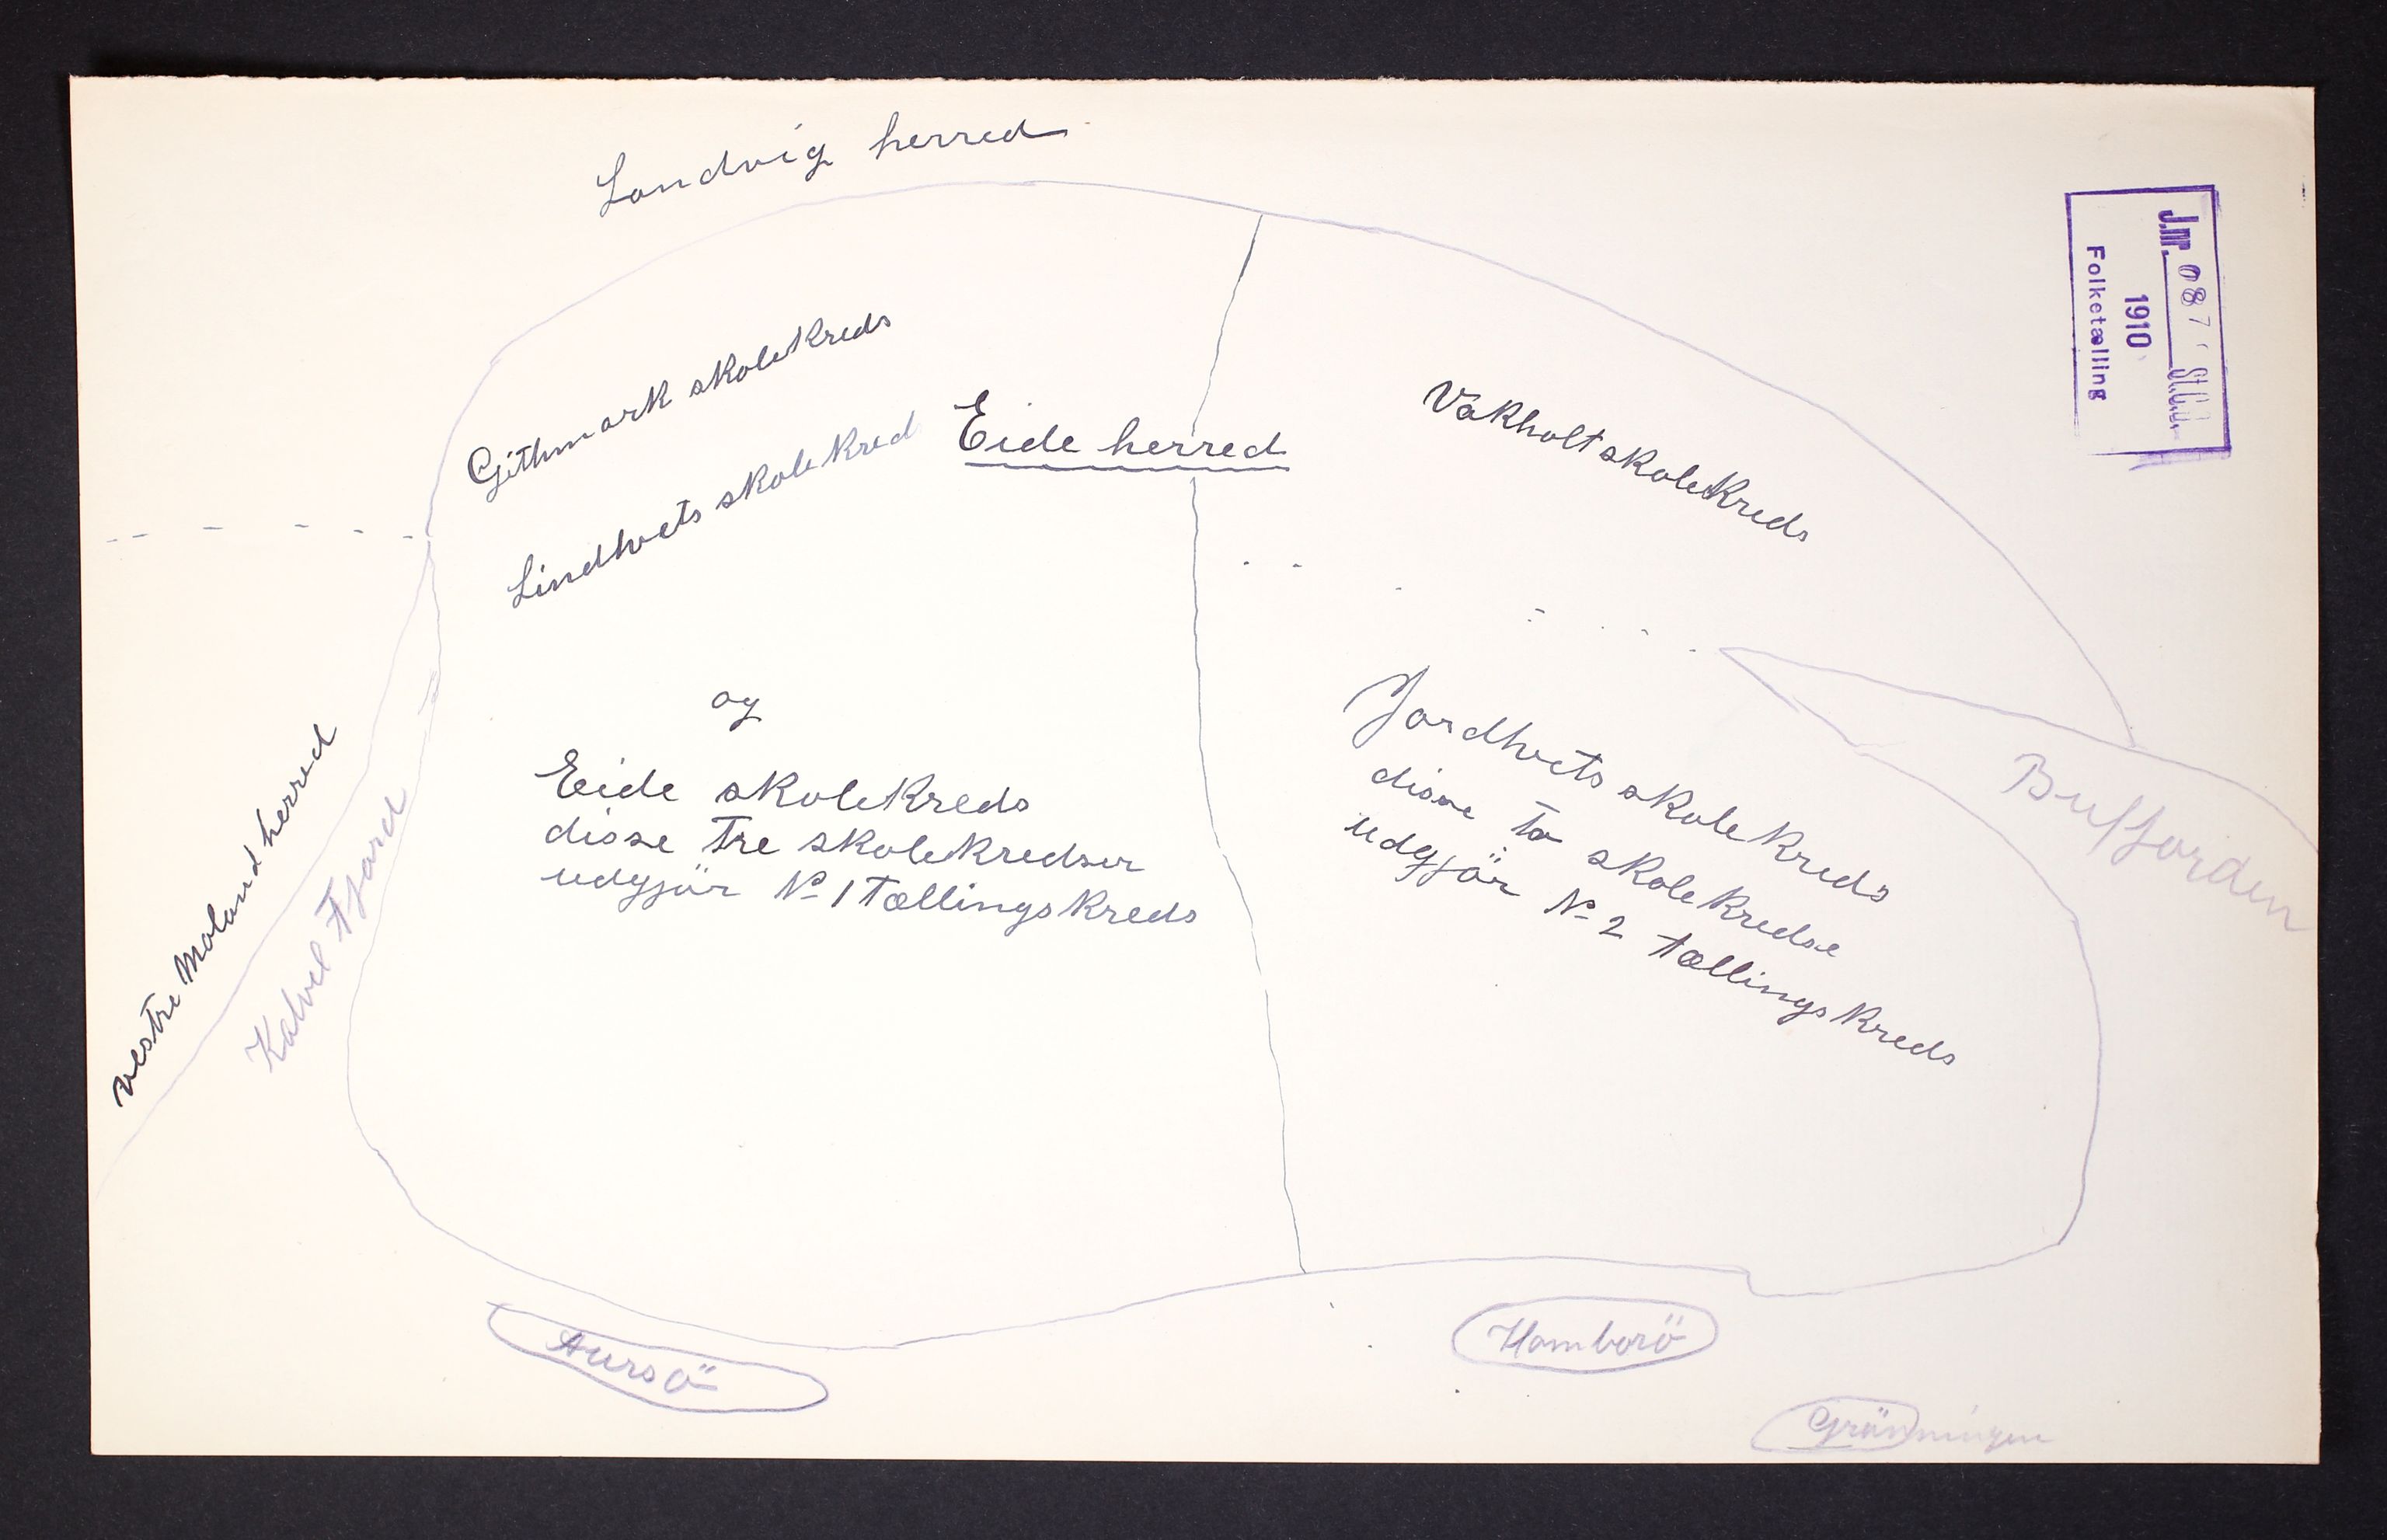 Landvig herred
Gjithmark skolekreds
Lindtvets skolekred
Eide herred
og
Eide skolekreds
disse Tre skolekredser
udgjör № 1 Tællingskreds
Vakholt skolekreds
disse to skolekredse
udgjör № 2 tællingskreds
vestre Moland herred
Kalvel Fjord
Bufjorden
Aursö
Homborö
Grönningen
J.nr.
1910
Folketælling